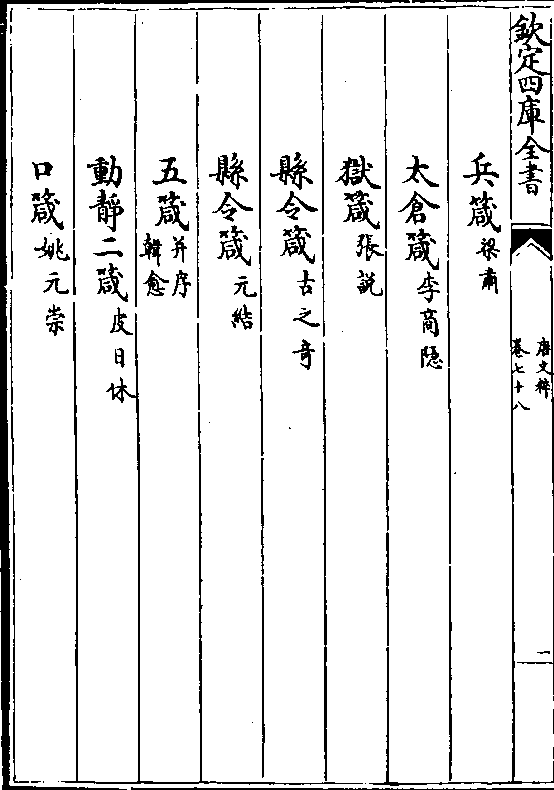 欽定四庫全書
唐文粹
卷七十八
一
兵箴梁肅
太倉箴李商隱
獄箴張說
縣令箴古之奇
縣令箴元結
五箴并序
韓愈
動靜二箴皮日休
口箴姚元崇